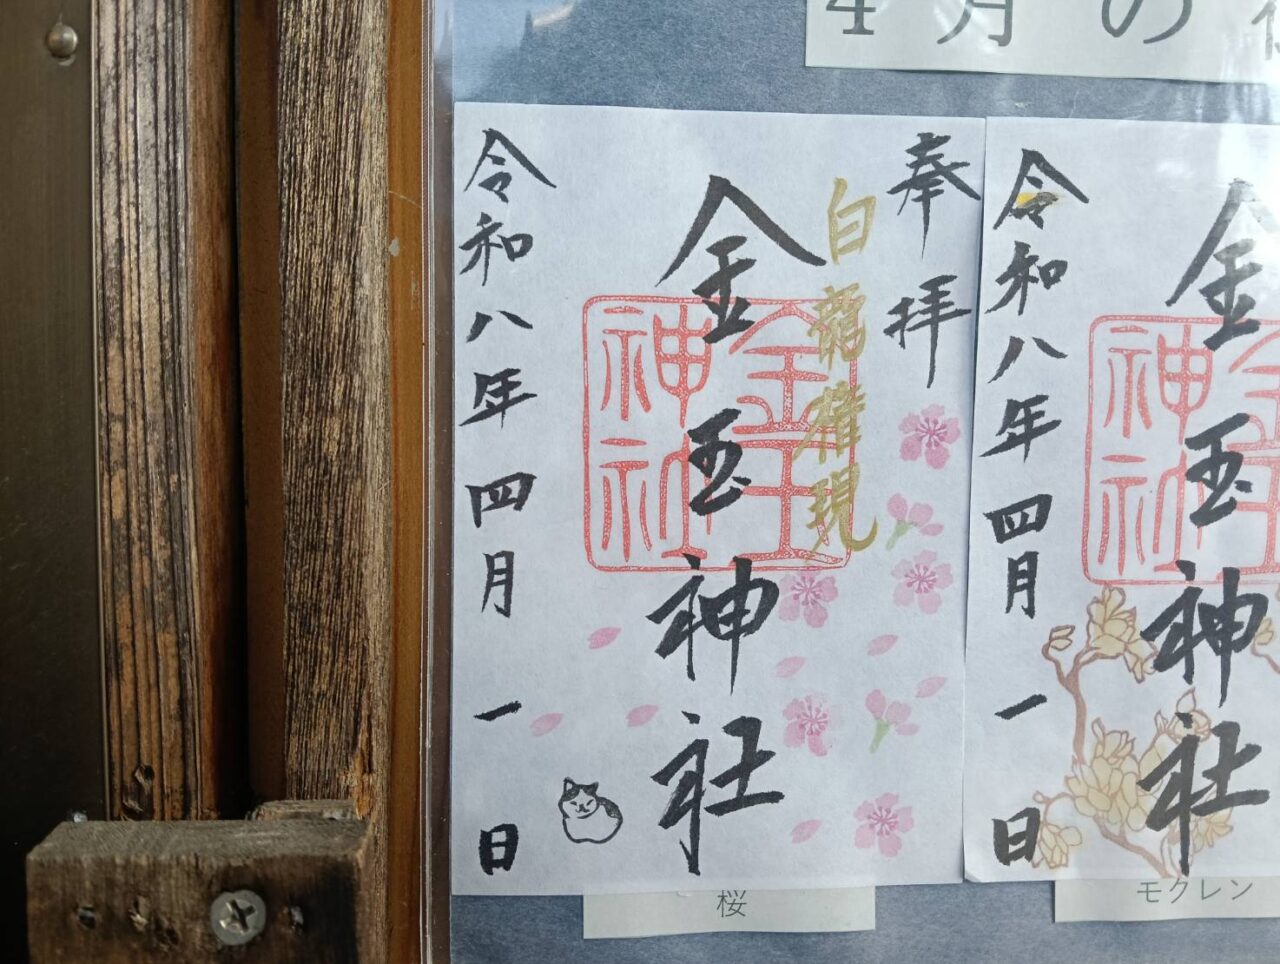 4月の
奉拝
白龍権現
金玉神社
金玉神社
令和八年四月一日
桜
金玉神社
令和八年四月一日
モクレン